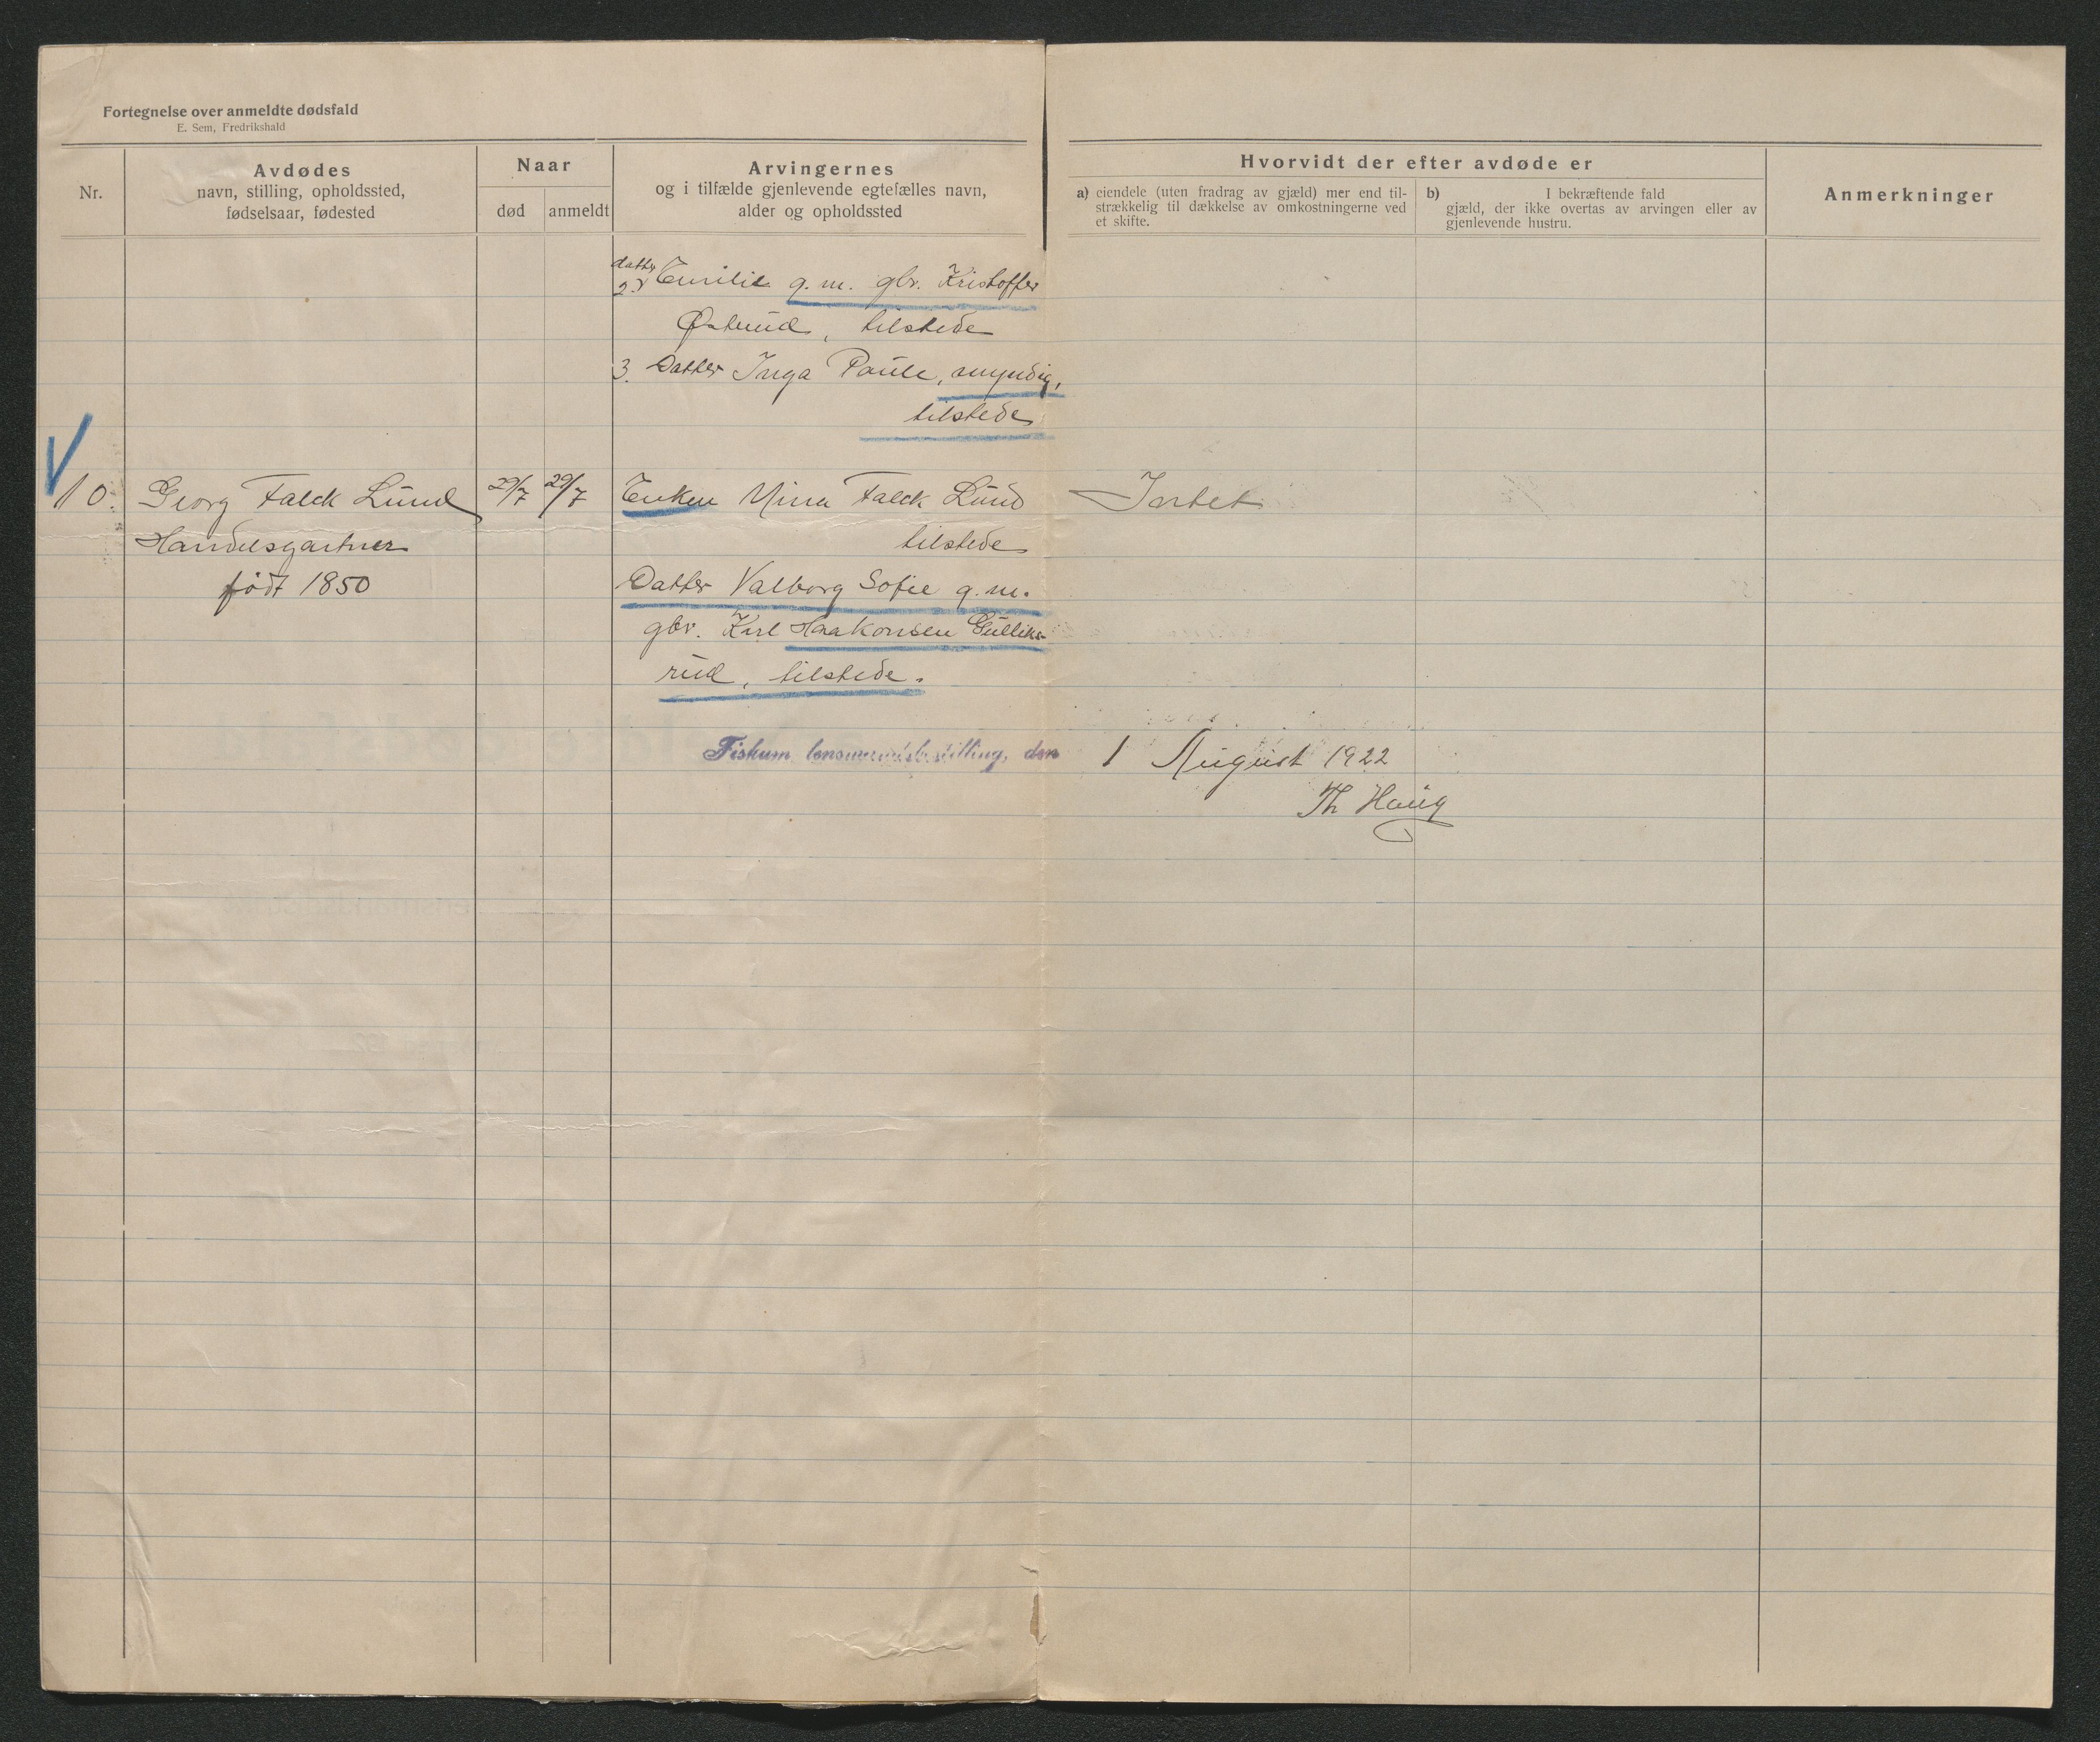 Fortegnelse over anmeldte dødsfald
E. Sem, Fredrikshald
Nr.
Avdødes
navn, stilling, opholdssted,
fødselsaar, fødested
Naar
død
anmeldt
Arvingernes
og i tilfælde gjenlevende egtefælles navn,
alder og opholdssted
Hvorvidt der efter avdøde er
a) eiendele (uten fradrag av gjæld) mer end til-
strækkelig til dækkelse av omkostningerne ved
et skifte.
b) I bekræftende fald
gjæld, der ikke overtas av arvingen eller av
gjenlevende hustru.
Anmerkninger
datter
2. Emilie g.m. gbr. Kristoffer
Østrud, tilstede
3. Datter Inga Paule, myndig,
tilstede
10. Georg Falck Lund 29/7 29/7 Enken Mina Falck Lund Intet
Handelsgartner tilstede
født 1850 Datter Valborg Sofie g.m.
gbr. Karl Haakonsen Gulliks-
rud, tilstede.
Fiskum lensmandsbestilling, den 1 August 1922
Th Haug